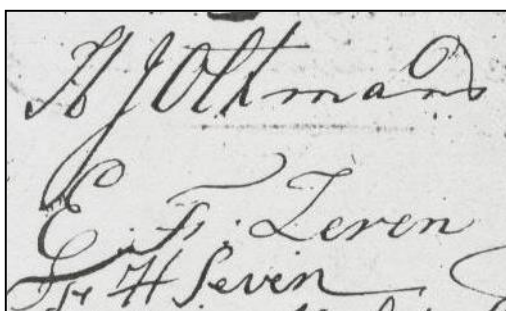 H J Oltmans
E. F. Zeven
Fr H Seven